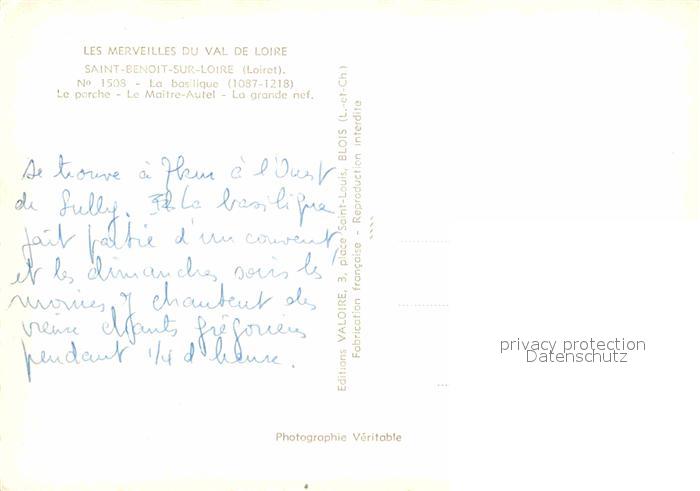 LES MERVEILLES DU VAL DE LOIRE
SAINT-BENOIT-SUR-LOIRE (Loiret).
No 1508 - La basilique (1087-1218)
Le porche - Le Maître-Autel - La grande nef.
se trouve à 7km à l'Ouest
de Sully. La basilique
fait partie d'un couvent,
et les dimanches soirs les
moines y chantent des
vieux chants grégoriens
pendant 1/4 d heure.
Editions VALOIRE, 3, place Saint-Louis, BLOIS (L.-et-Ch.)
Fabrication française - Reproduction interdite
privacy protection
Datenschutz
Photographie Véritable